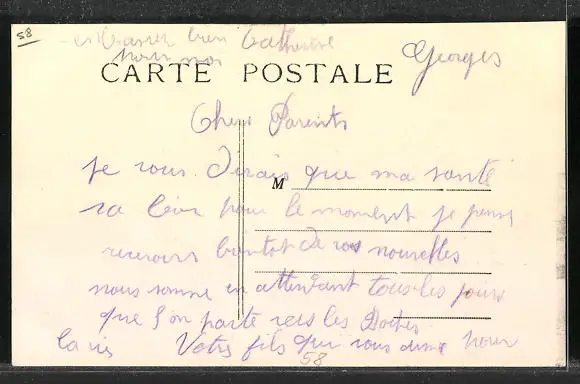 58
embrasser bien Catherine
pour moi
Georges
CARTE POSTALE
Chers Parents
je vous dirais que ma santé
M
va bien pour le moment je pense
recevoir bientot de vos nouvelles
nous somme en attendant tous les jours
que l'on parte vers les
Votre fils qui vous aime pour
la vie
58